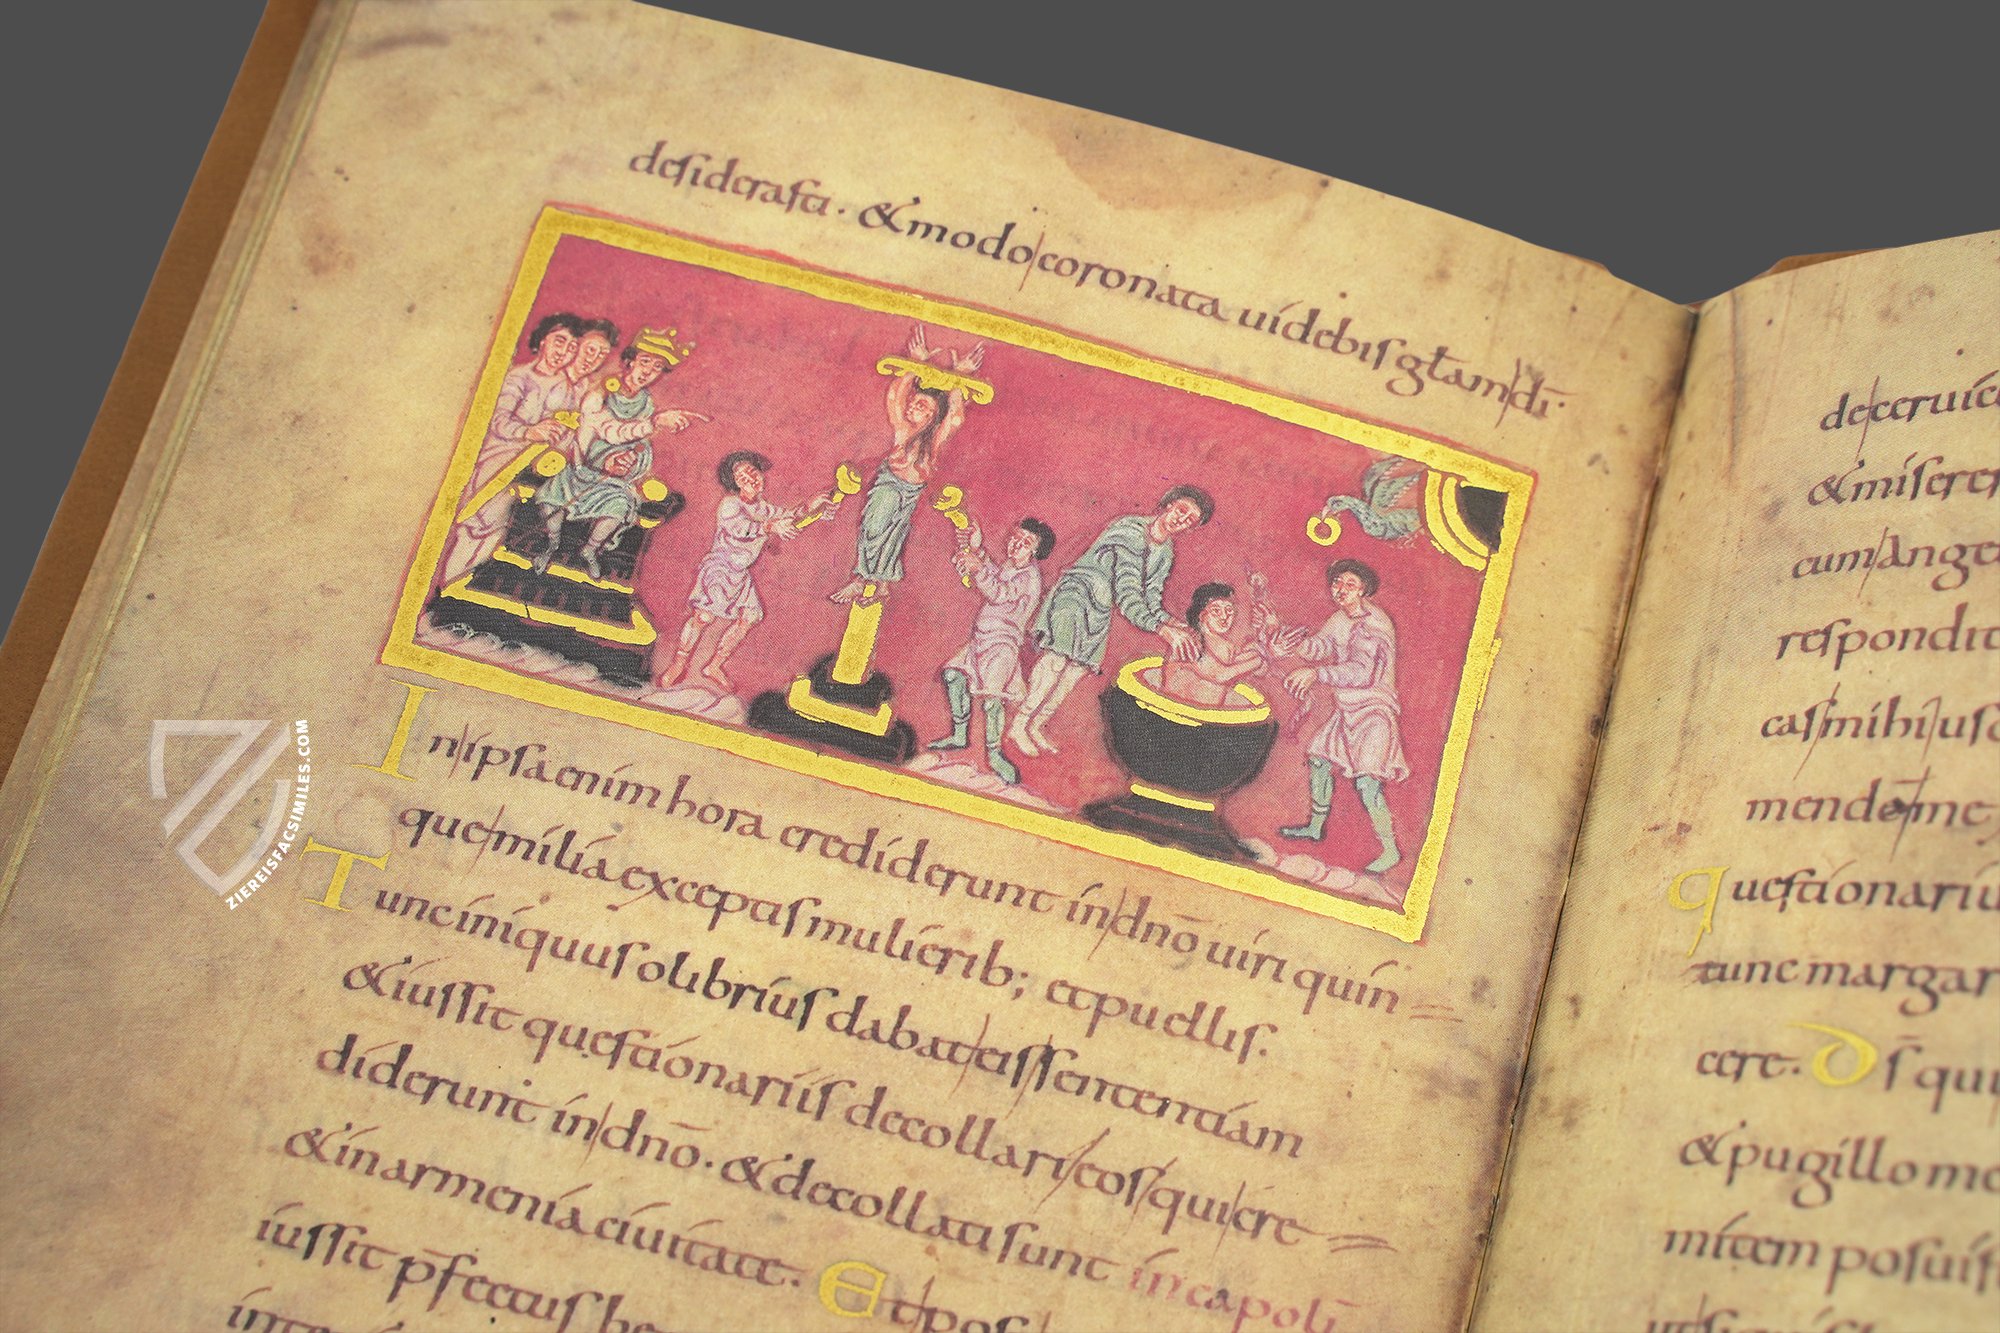 desiderasti. & modo coronata uidebis głam dī.
In ipsa enim hora crediderunt in dnō uiri quin=
que milia exceptis mulierib; et puellis.
Tunc iniquus olibrius dabat eis sententiam
& iussit questionariis decollari eos qui cre=
diderunt in dnō. & decollati sunt in capoli
& in armenia ciuitate. Et pos
iussit p̄fectus be
de ceruice
& miserer
cum Angel
respondit
cas mihi us
mende me
questionariu
tunc margar
cere. Ds̄ qui
& pugillo me
mitem posuis
ZIEREISFACSIMILES.COM